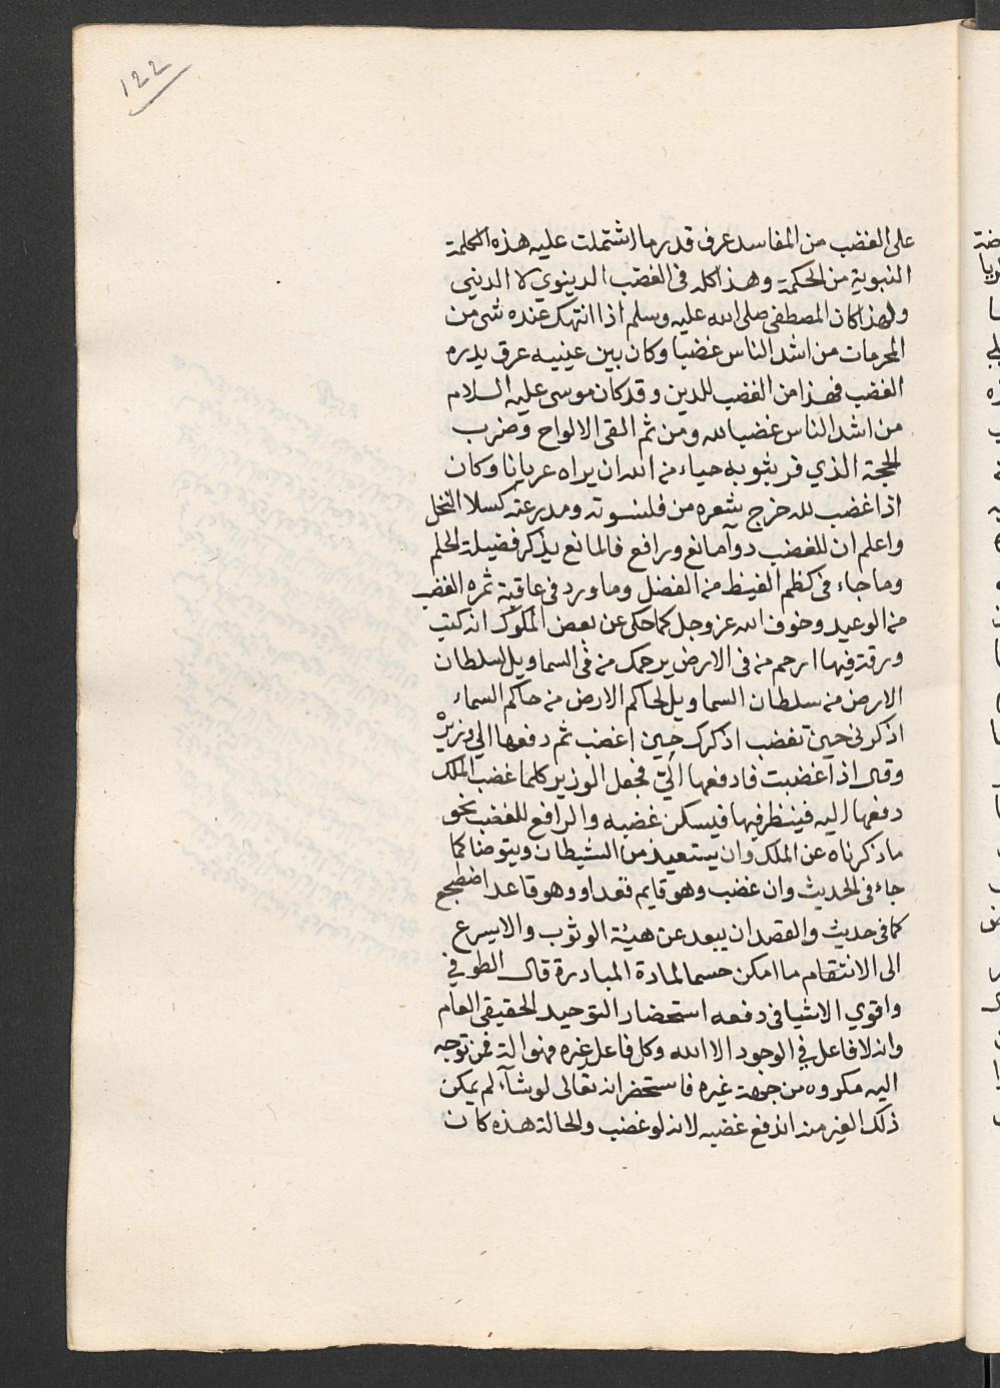 122
على الغضب من المفاسد عرف قدر ما اشتملت عليه هذه الكلمة
النبوية من الحكمة وهذا كله فى الغضب الدينوي لا الديني
ولهذا كان المصطفى صلى الله عليه وسلم اذا انتهك عنده شى من
المحرمات من اشد الناس غضبا وكان بين عينيه عرق يدره
الغضب فهذا من الغضب للدين وقد كان موسى عليه السلام
من اشد الناس غضبا لله ومن ثم القى الالواح وضرب
الحجة الذي فر بثوبه حياء من الله ان يراه عريانا وكان
اذا غضب لله خرج شعره من قلنسوته ومدرعته كسلا النخل
واعلم ان للغضب دوآ مانع ورافع فالمانع يذكر فضيلة الحلم
وما جاء فى كظم الغيظ من الفضل وما ورد فى عاقبة ثمره الغضب
من الوعيد وخوف الله عز وجل كما حكى عن بعض الملوك انه كتب
ورقة فيها ارحم من فى الارض يرحمك من فى السما ويل لسلطان
الارض من سلطان السما ويل لحاكم الارض من حاكم السماء
اذكرنى حين تغضب اذكرك حين اغضب ثم دفعها الي وزيره
وقال اذا غضبت فادفعها الىّ فجعل الوزير كلما غضب الملك
دفعها اليه فينظر فيها فيسكن غضبه والرافع للغضب نحو
ما ذكرناه عن الملك وان يستعيذ من الشيطان ويتوضا كما
جاء فى الحديث وان غضب وهو قايم قعد او وهو قاعد اضطجع
كما فى حديث والقصد ان يبعد عن هيئة الوثوب والا يسرع
الى الانتقام ما امكن حسما لمادة المبادرة قال الطوفي
واقوي الاشيا فى دفعه استحضار التوحيد الحقيقى العام
وانه لا فاعل في الوجود الا الله وكل فاعل غيره فهو الة فمن توجه
اليه مكروه من جهة غيره فاستحضر انه تعالى لو شآء لم يمكن
ذلك الغير منه اندفع غضبه لانه لو غضب والحالة هذه كان